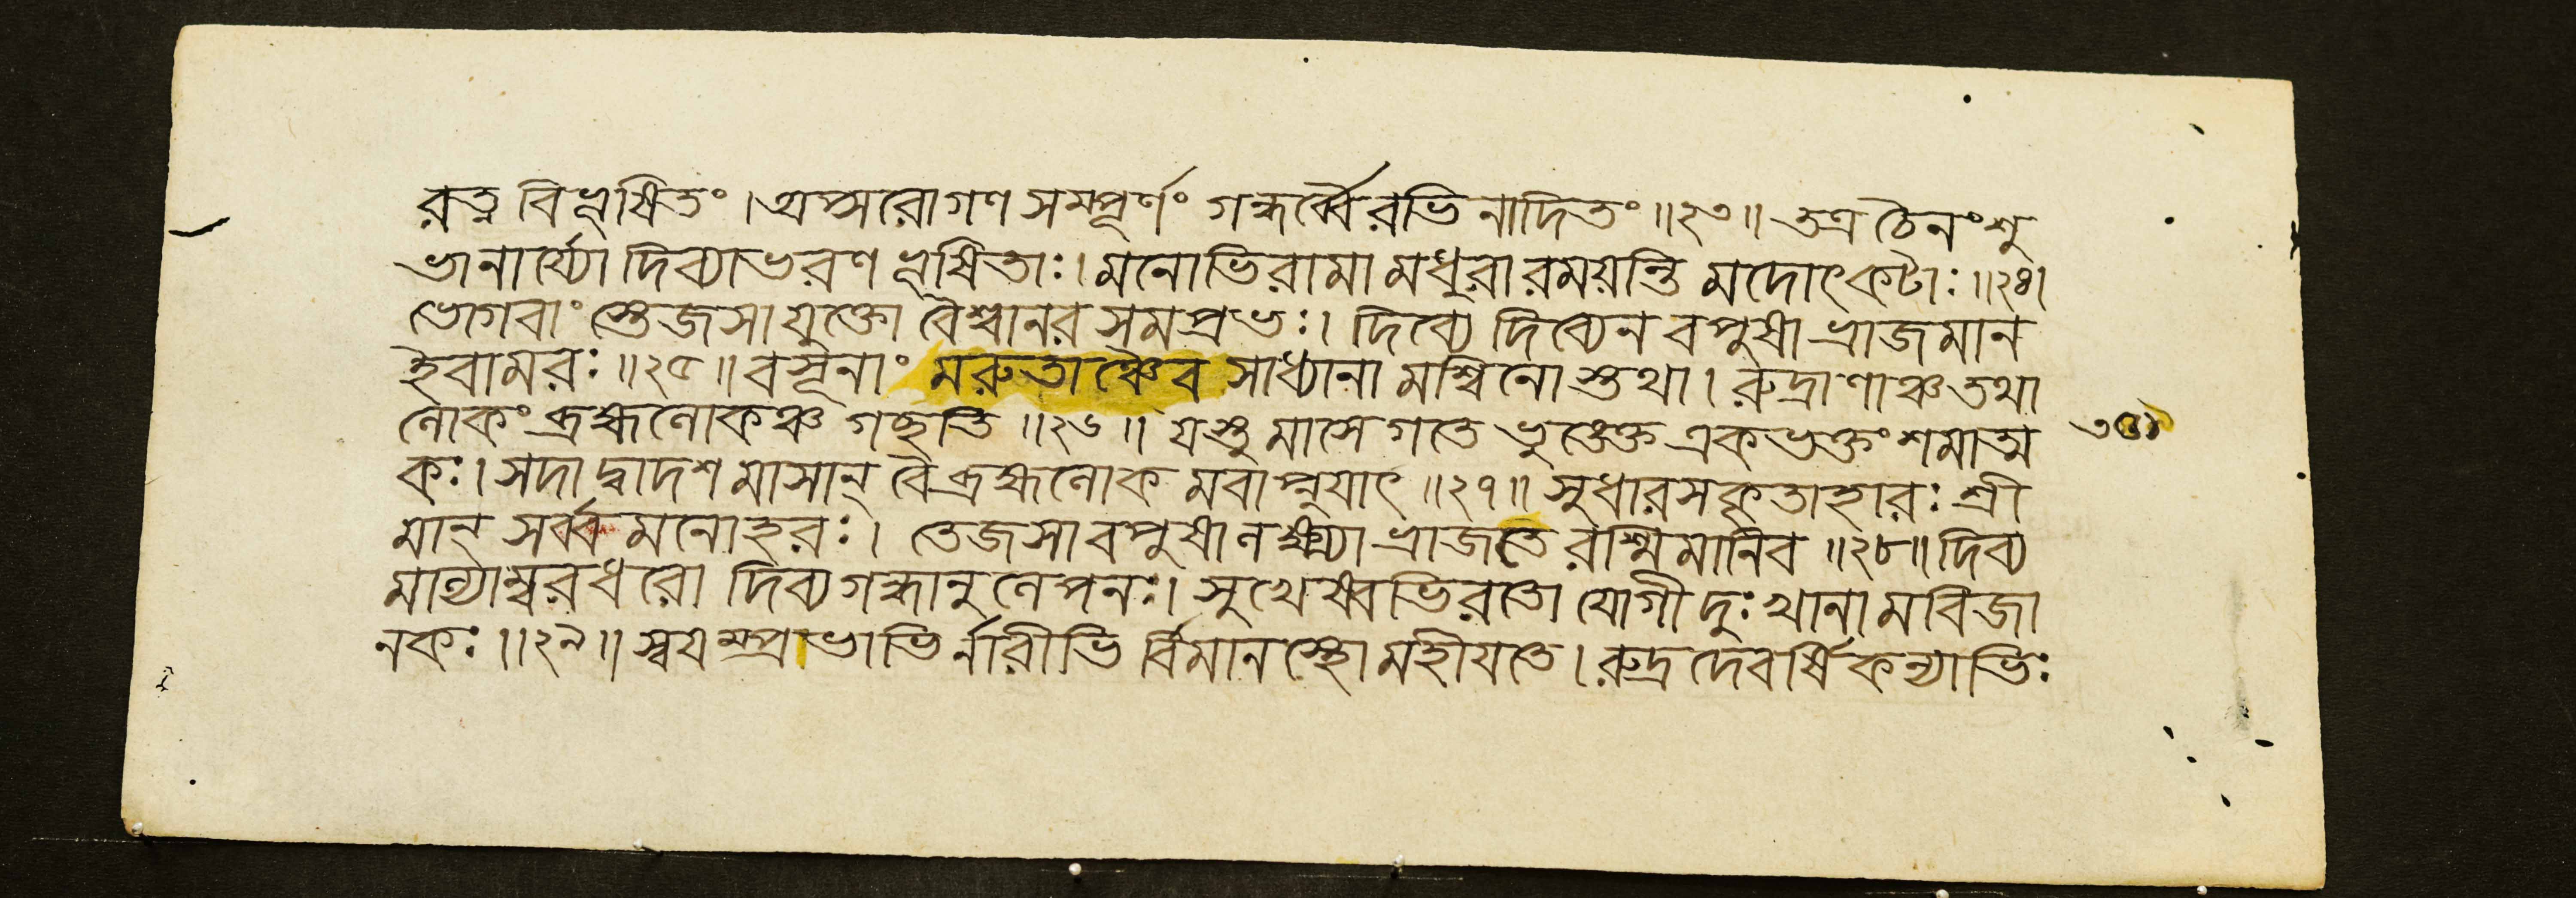 রত্ন বিভূষিতং।অপ্সরোগণ সম্পূর্ণং গন্ধর্ব্বৈরভি নাদিতং॥২৩॥ তত্র চৈনং শু
ভানার্য্যো দিব্যাভরণ ভূষিতাঃ।মনোভিরামা মধুরা রময়ন্তি মদোৎকটাঃ॥২৪।
ভোগবাংস্তেজসা যুক্তো বৈশ্বানর সমপ্রভঃ। দিব্যে দিব্যেন বপুষা ভ্রাজমান
ইবামরঃ॥২৫॥ বসূনাং মরুতাঞ্চৈব সাধ্যানা মশ্বিনোস্তথা। রুদ্রাণাঞ্চ তথা
লোকং ব্রহ্মলোকঞ্চ গচ্ছতি॥২৬॥ যস্তু মাসে গতে ভুঙ্ক্তে একভক্তং শমাত্ম
৩৫
কঃ। সদা দ্বাদশ মাসান্ বৈ ব্রহ্মলোক মবাপ্নুয়াৎ॥২৭॥ সুধারসকৃতাহারঃ শ্রী
মান্ সর্ব্ব মনোহরঃ। তেজসা বপুষা লক্ষ্ম্যা ভ্রাজতে রশ্মিমানিব॥২৮॥ দিব্য
মাল্যাম্বরধরো দিব্য গন্ধানুলেপনঃ। সুখেষ্বভিরতো যোগী দুঃখানামবিজা
নকঃ॥২৯॥ স্বয়ম্প্রভাভির্নারীভি র্বিমানস্থো মহীয়তে। রুদ্র দেবর্ষি কন্যাভিঃ